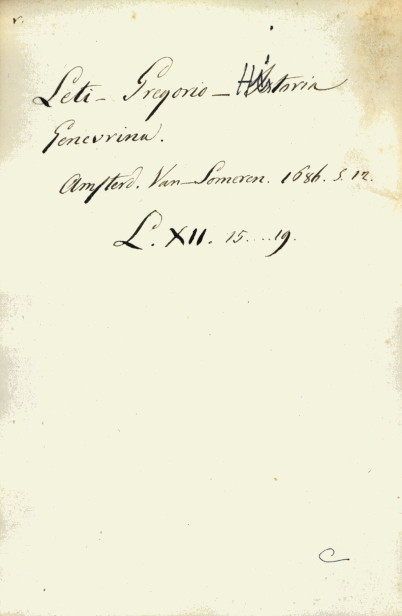 r.
Leti - Gregorio - Historia
Genevrina.
Amsterd. Van-Someren. 1686. 5. 12.
L. XII. 15...19.
C